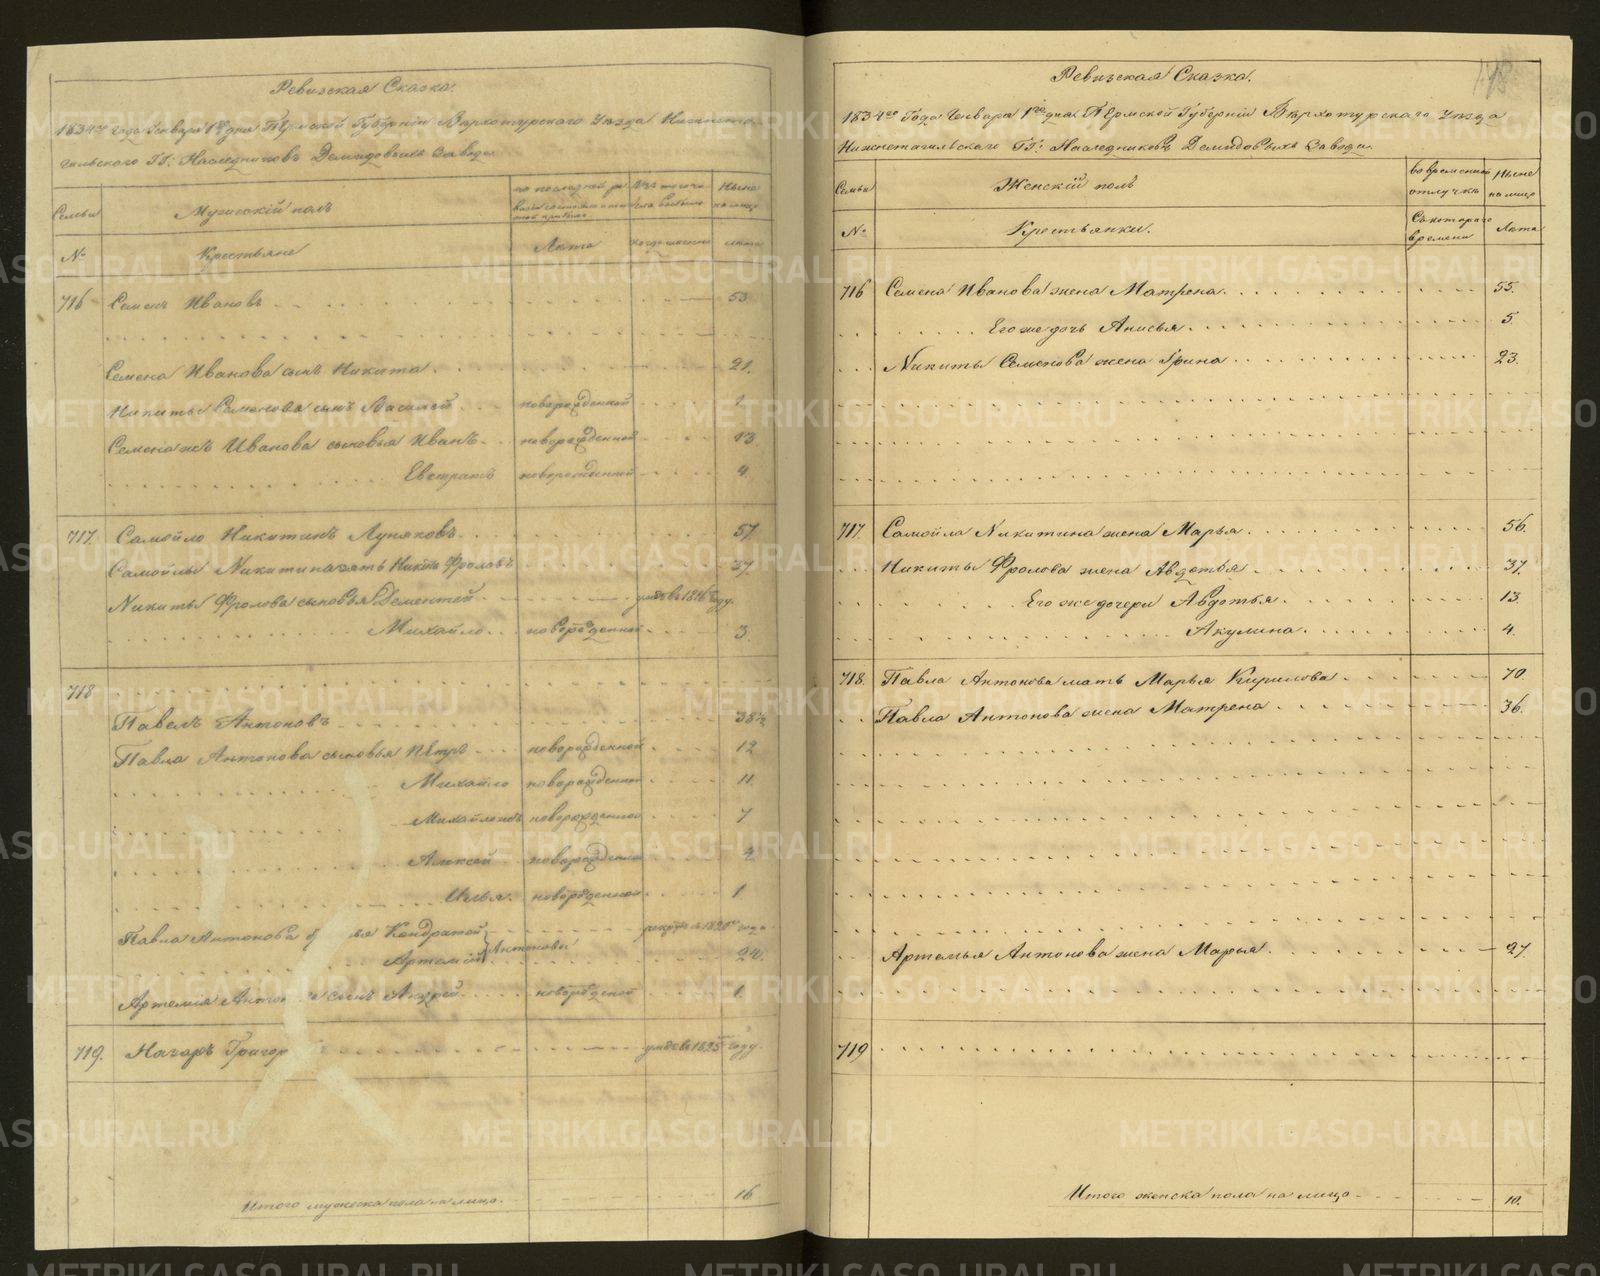 Ревизская Сказка.
1834го года Генваря 1го дня Пермской Губернiи Верхотурского Уезда Нижнета
гильского ГГ: Наследниковъ Демидовыхъ Завода
Семьи
Мужескiй полъ
по последней ре
Изъ того чи
сла выбыло
Ныне
на лицо
№
Крестьяне
Лета
когда именно
лета
716 Семенъ Ивановъ 53
Семена Иванова сынъ Никита 21.
Никиты Семенова сынъ Василей новорожденной 1
Семена жъ Иванова сыновья Иванъ новорожденной 13
Евстратъ новорожденной 4
717. Самойло Никитинъ Луняковъ 57
Самойлы Никитина зять Никита Фроловъ 37
Никиты Фролова сыновья Дементей въ 1816 году.
Михайло новорожденной 3.
718
Павелъ Антоновъ 38½
Павла Антонова сыновья Петръ новорожденной 12
Михайло новорожденной 11
Михайло жъ новорожденной 7
Алексей новорожденной 2
Илья. новорожденной 1
Павла Антонова Кондратей въ 1820 года
Артемiй Антоновы 24.
Артемья сынъ Андрей новорожденной 1
719. Назаръ Григор въ 1825 году.
Итого мужеска пола на лицо. 16
Ревизская Сказка.
1834го Года Генваря 1го дня Пермской Губернiи Верхотурскаго Уезда
Нижнетагильскаго ГГ: Наследниковъ Демидовыхъ Завода.
Семьи
Женскiй полъ
во временной
отлучке
Ныне
на лицо
№
Крестьянки.
Съ котораго
времени
Лета
716 Семена Иванова жена Матрена 55.
Его же дочь Анисья 5
Никиты Семенова жена Ирина 23.
717. Самойла Никитина жена Марья 56.
Никиты Фролова жена Авдотья 37.
Его же дочери Авдотья 13.
Акулина 4.
718. Павла Антонова мать Марья Кирилова 70.
Павла Антонова жена Матрена 36.
Артемья Антонова жена Марья 27.
719
Итого женска пола на лицо 10.
METRIKI.GASO-URAL.RU